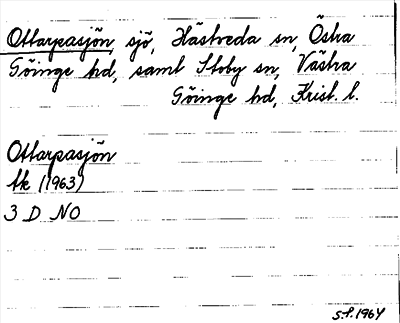 Ottarpasjön sjö, Hästveda sn, Östra
Göinge hd, samt Stoby sn, Västra
Göinge hd, Krist. l.
Ottarpasjön
tk (1963)
3 D NO
s.f. 1964